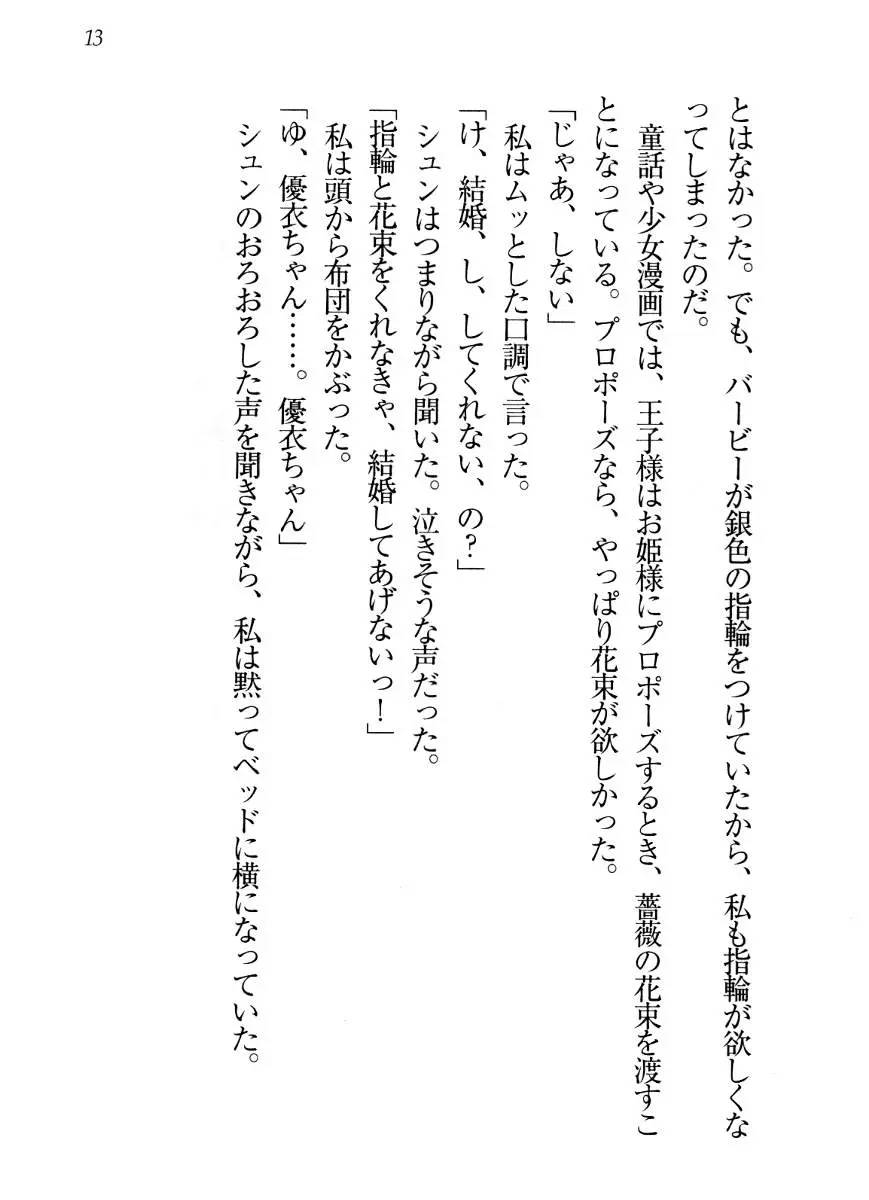 13
とはなかった。でも、バービーが銀色の指輪をつけていたから、私も指輪が欲しくな
ってしまったのだ。
童話や少女漫画では、王子様はお姫様にプロポーズするとき、薔薇の花束を渡すこ
とになっている。プロポーズなら、やっぱり花束が欲しかった。
「じゃあ、しない」
私はムッとした口調で言った。
「け、結婚、し、してくれない、の？」
シュンはつまりながら聞いた。泣きそうな声だった。
「指輪と花束をくれなきゃ、結婚してあげないっ！」
私は頭から布団をかぶった。
「ゆ、優衣ちゃん……。優衣ちゃん」
シュンのおろおろした声を聞きながら、私は黙ってベッドに横になっていた。